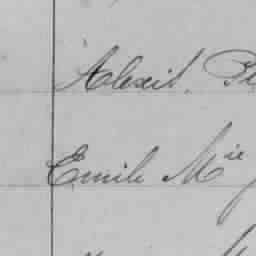 Alexis
Emile Mie